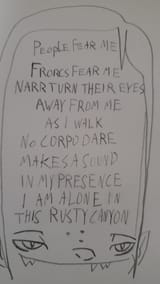 PEOPLE FEAR ME
FROACS FEAR ME
NARR TURN THEIR EYES
AWAY FROM ME
AS I WALK
NO CORPO DARE
MAKES A SOUND
IN MY PRESENCE
I AM ALONE IN
THIS RUSTY CANYON